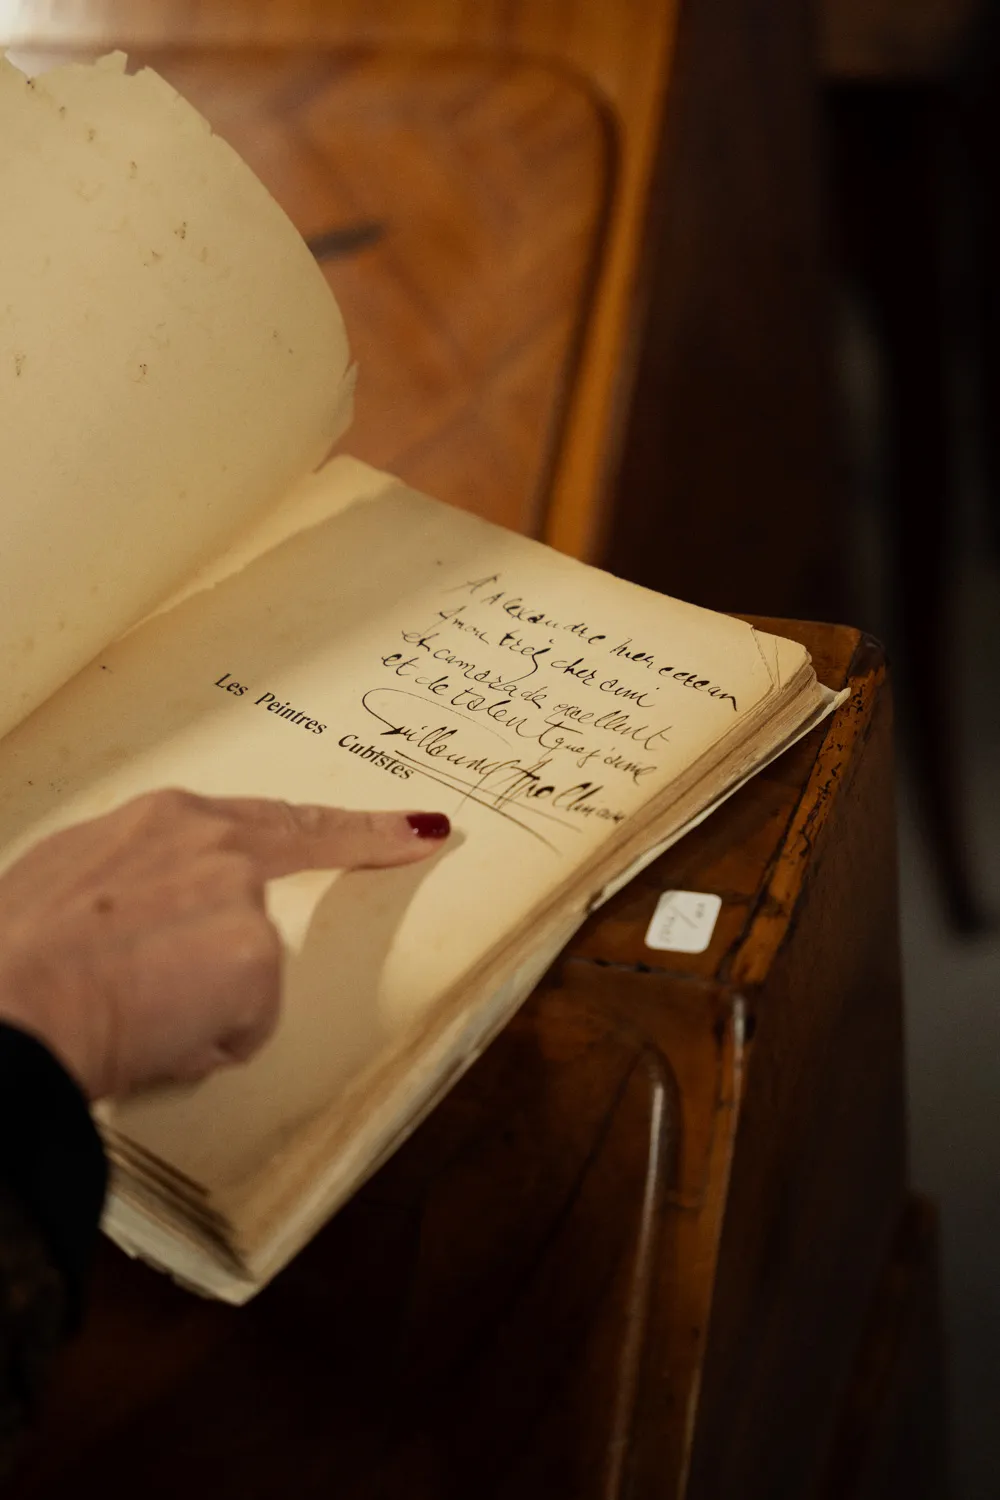 A Alexandre Mercereau
mon très cher ami
et camarade excellent
et de talent que j'aime
Guillaume Apollinaire
Les Peintres Cubistes